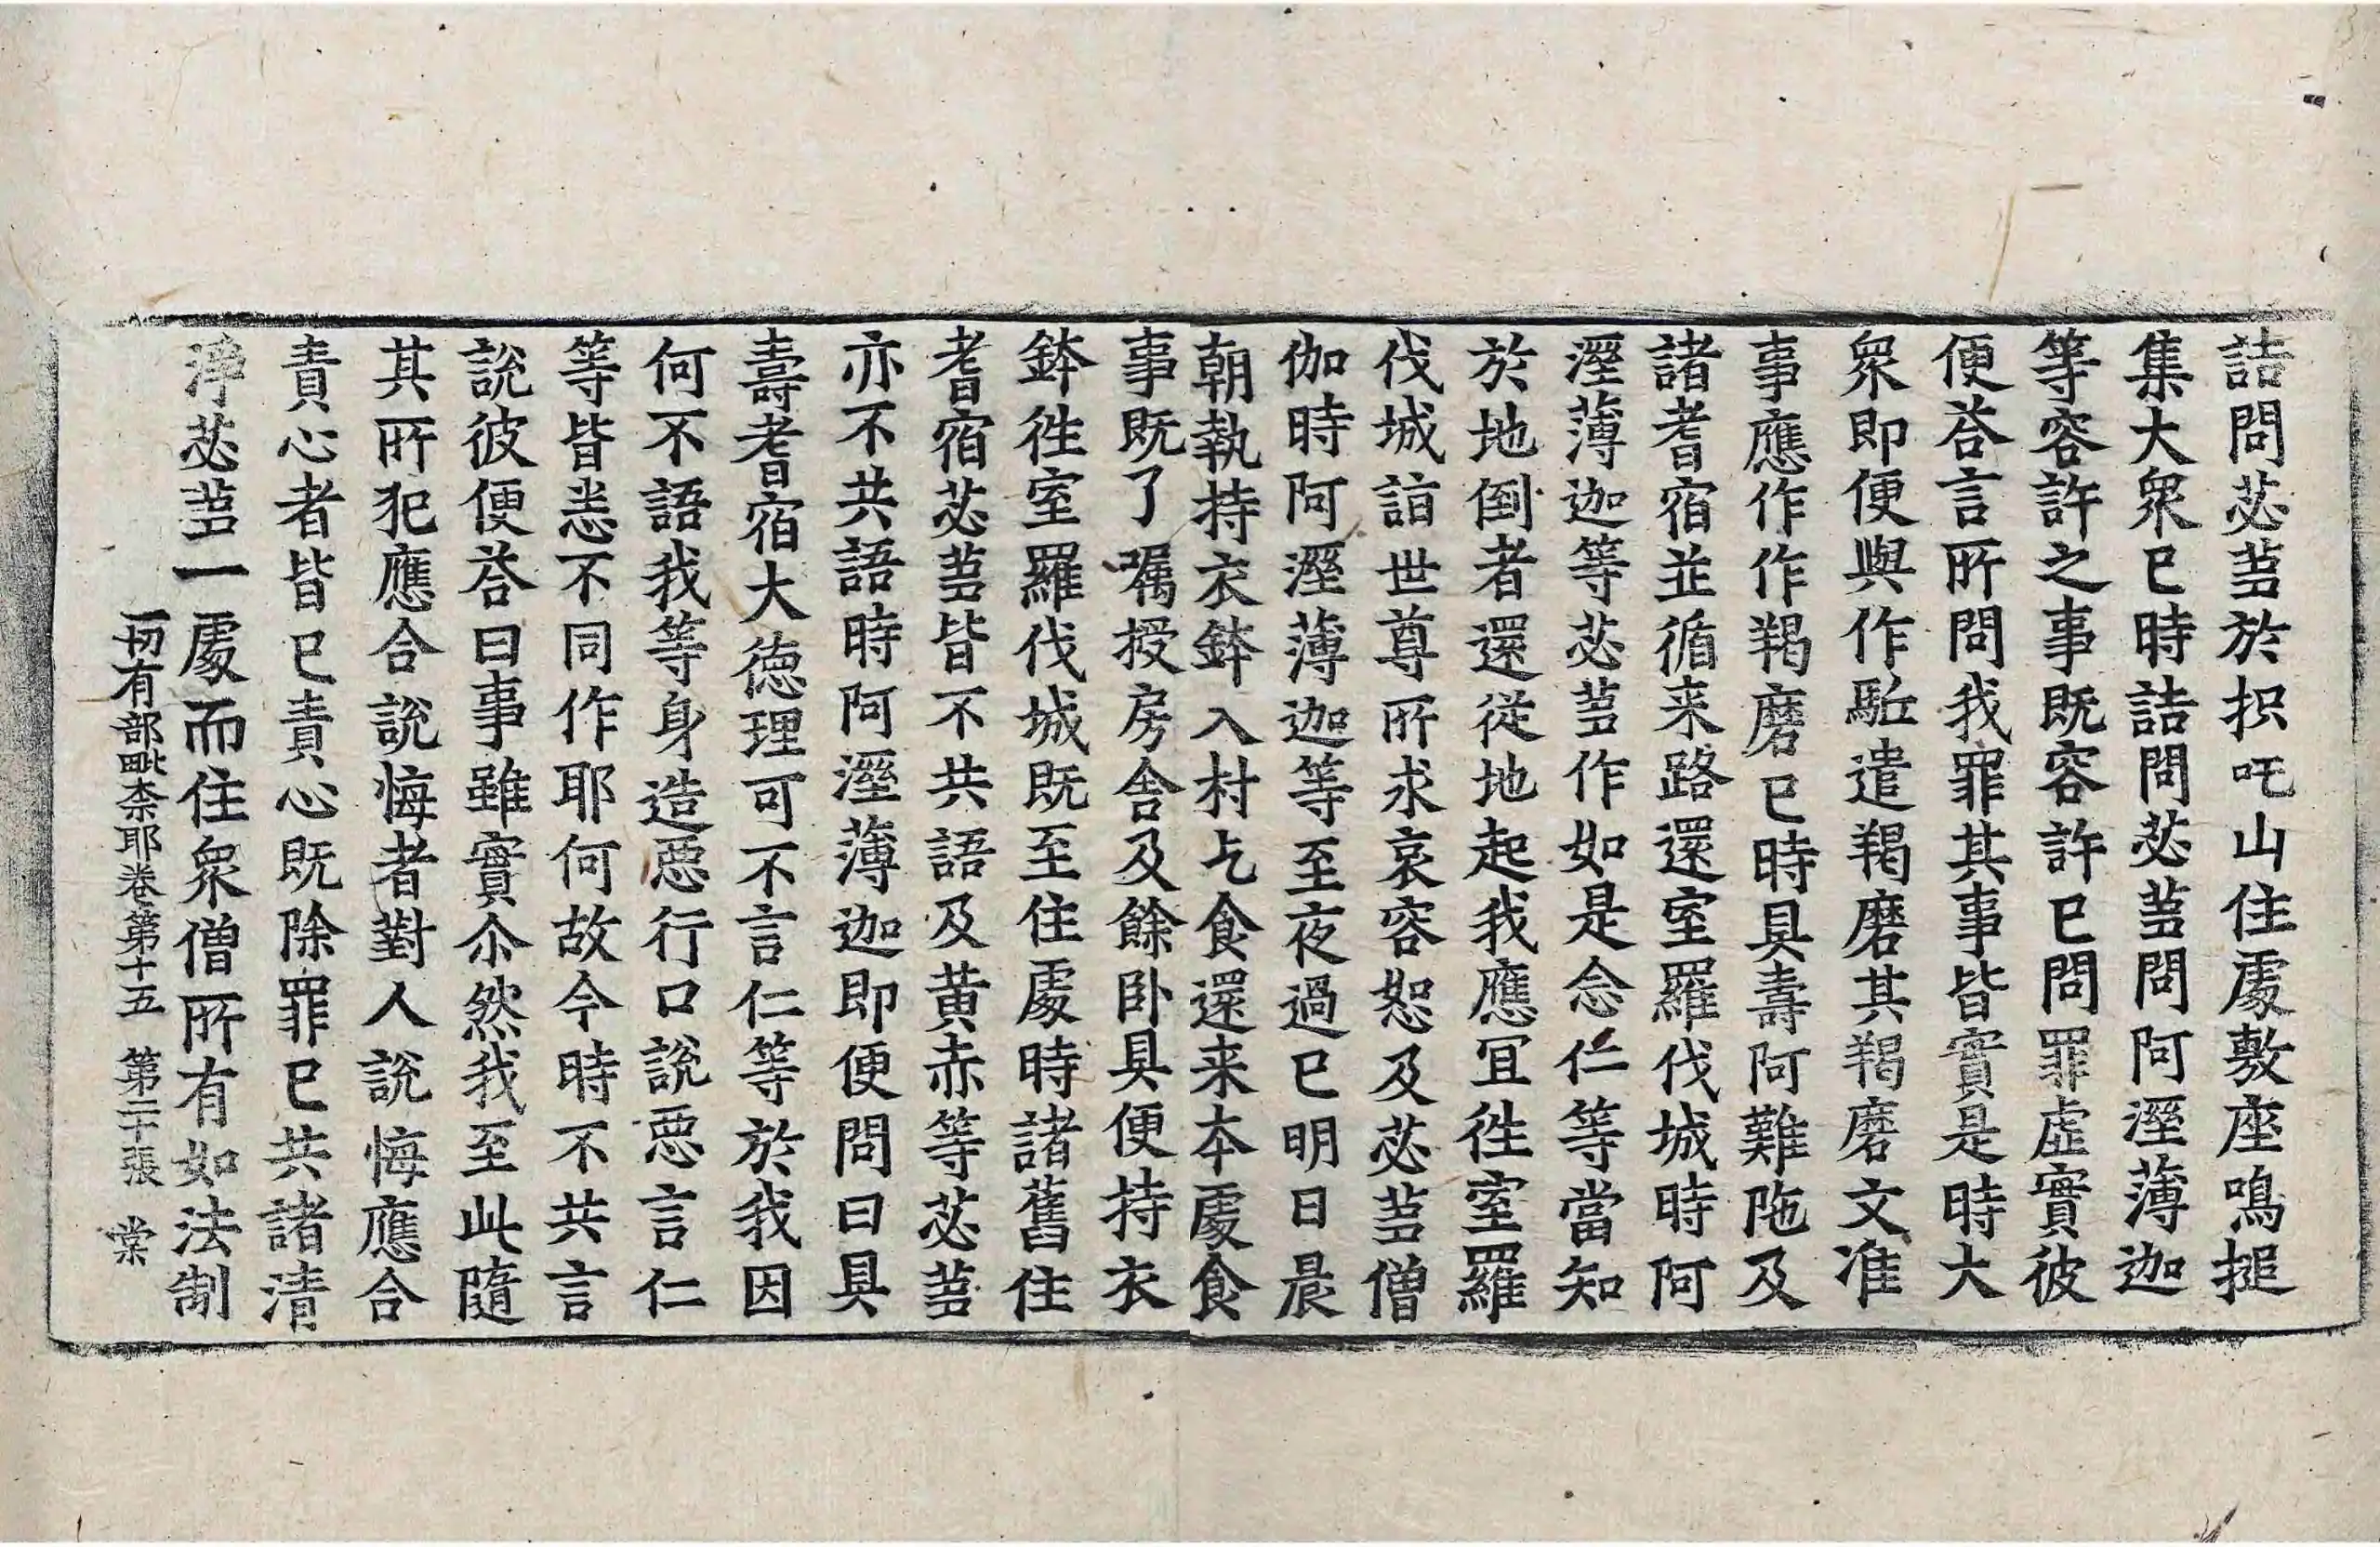 詰問苾蒭於抧吒山住處敷座鳴搥
集大衆已時詰問苾蒭問阿溼薄迦
等容許之事既容許已問罪虛實彼
便荅言所問我罪其事皆實是時大
衆即便與作駈遣羯磨其羯磨文准
事應作作羯磨已時具壽阿難陁及
諸耆宿並循来路還室羅伐城時阿
溼薄迦等苾蒭作如是念仁等當知
於地倒者還從地起我應冝徃室羅
伐城詣世尊所求哀容恕及苾蒭僧
伽時阿溼薄迦等至夜過已明日晨
朝執持衣鉢入村乞食還来本處食
事既了囑授房舍及餘卧具便持衣
鉢徃室羅伐城既至住處時諸舊住
耆宿苾蒭皆不共語及黄赤等苾蒭
亦不共語時阿溼薄迦即便問曰具
壽耆宿大德理可不言仁等於我因
何不語我等身造惡行口說惡言仁
等皆悉不同作耶何故今時不共言
說彼便荅曰事雖實尒然我至此隨
其所犯應合說悔者對人說悔應合
責心者皆已責心既除罪已共諸清
淨苾蒭一處而住衆僧所有如法制
一切有部毗柰耶卷第十五　第二十張　棠